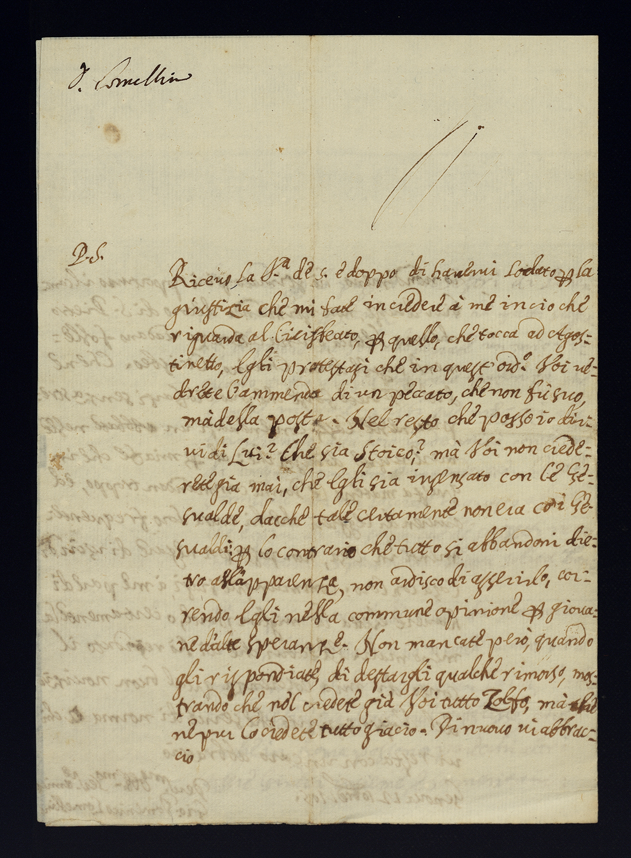 P.S.
Ricevo la S.ra de 5. e doppo di havervi lodato per la
giustizia che mi fate in credere à me in cio che
riguarda al Cicisbeato, per quello, che tocca ad Agos-
tinetto, Egli protestasi che in quest' ord.o Voi ve-
drete l'ammenda di un peccato, che non fù suo,
mà della posta. Nel resto che posso io dir-
vi di Lui? Che sia Stoico? mà Voi non crede-
rete gia mai, che Egli sia insensato con le Ge-
sualde, dacchè tale certamente non era coi Ge-
sualdi; per lo contrario che tutto si abbandoni die-
tro all'apparenze, non ardisco di asserirlo, cor-
rendo Egli nella commune opinione per giova-
ne d'alte speranze. Non mancate però, quando
gli rispondiate, di destargli qualche rimorso, mos-
trando che nol credete già Voi tutto Zolfo, mà
ne pur lo credete tutto giacio. Di nuovo vi abbrac-
cio